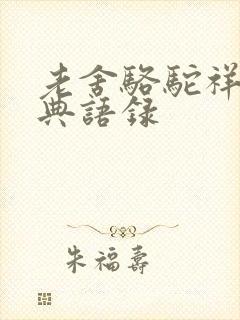 老舍駱駝祥
典語録
朱福壽